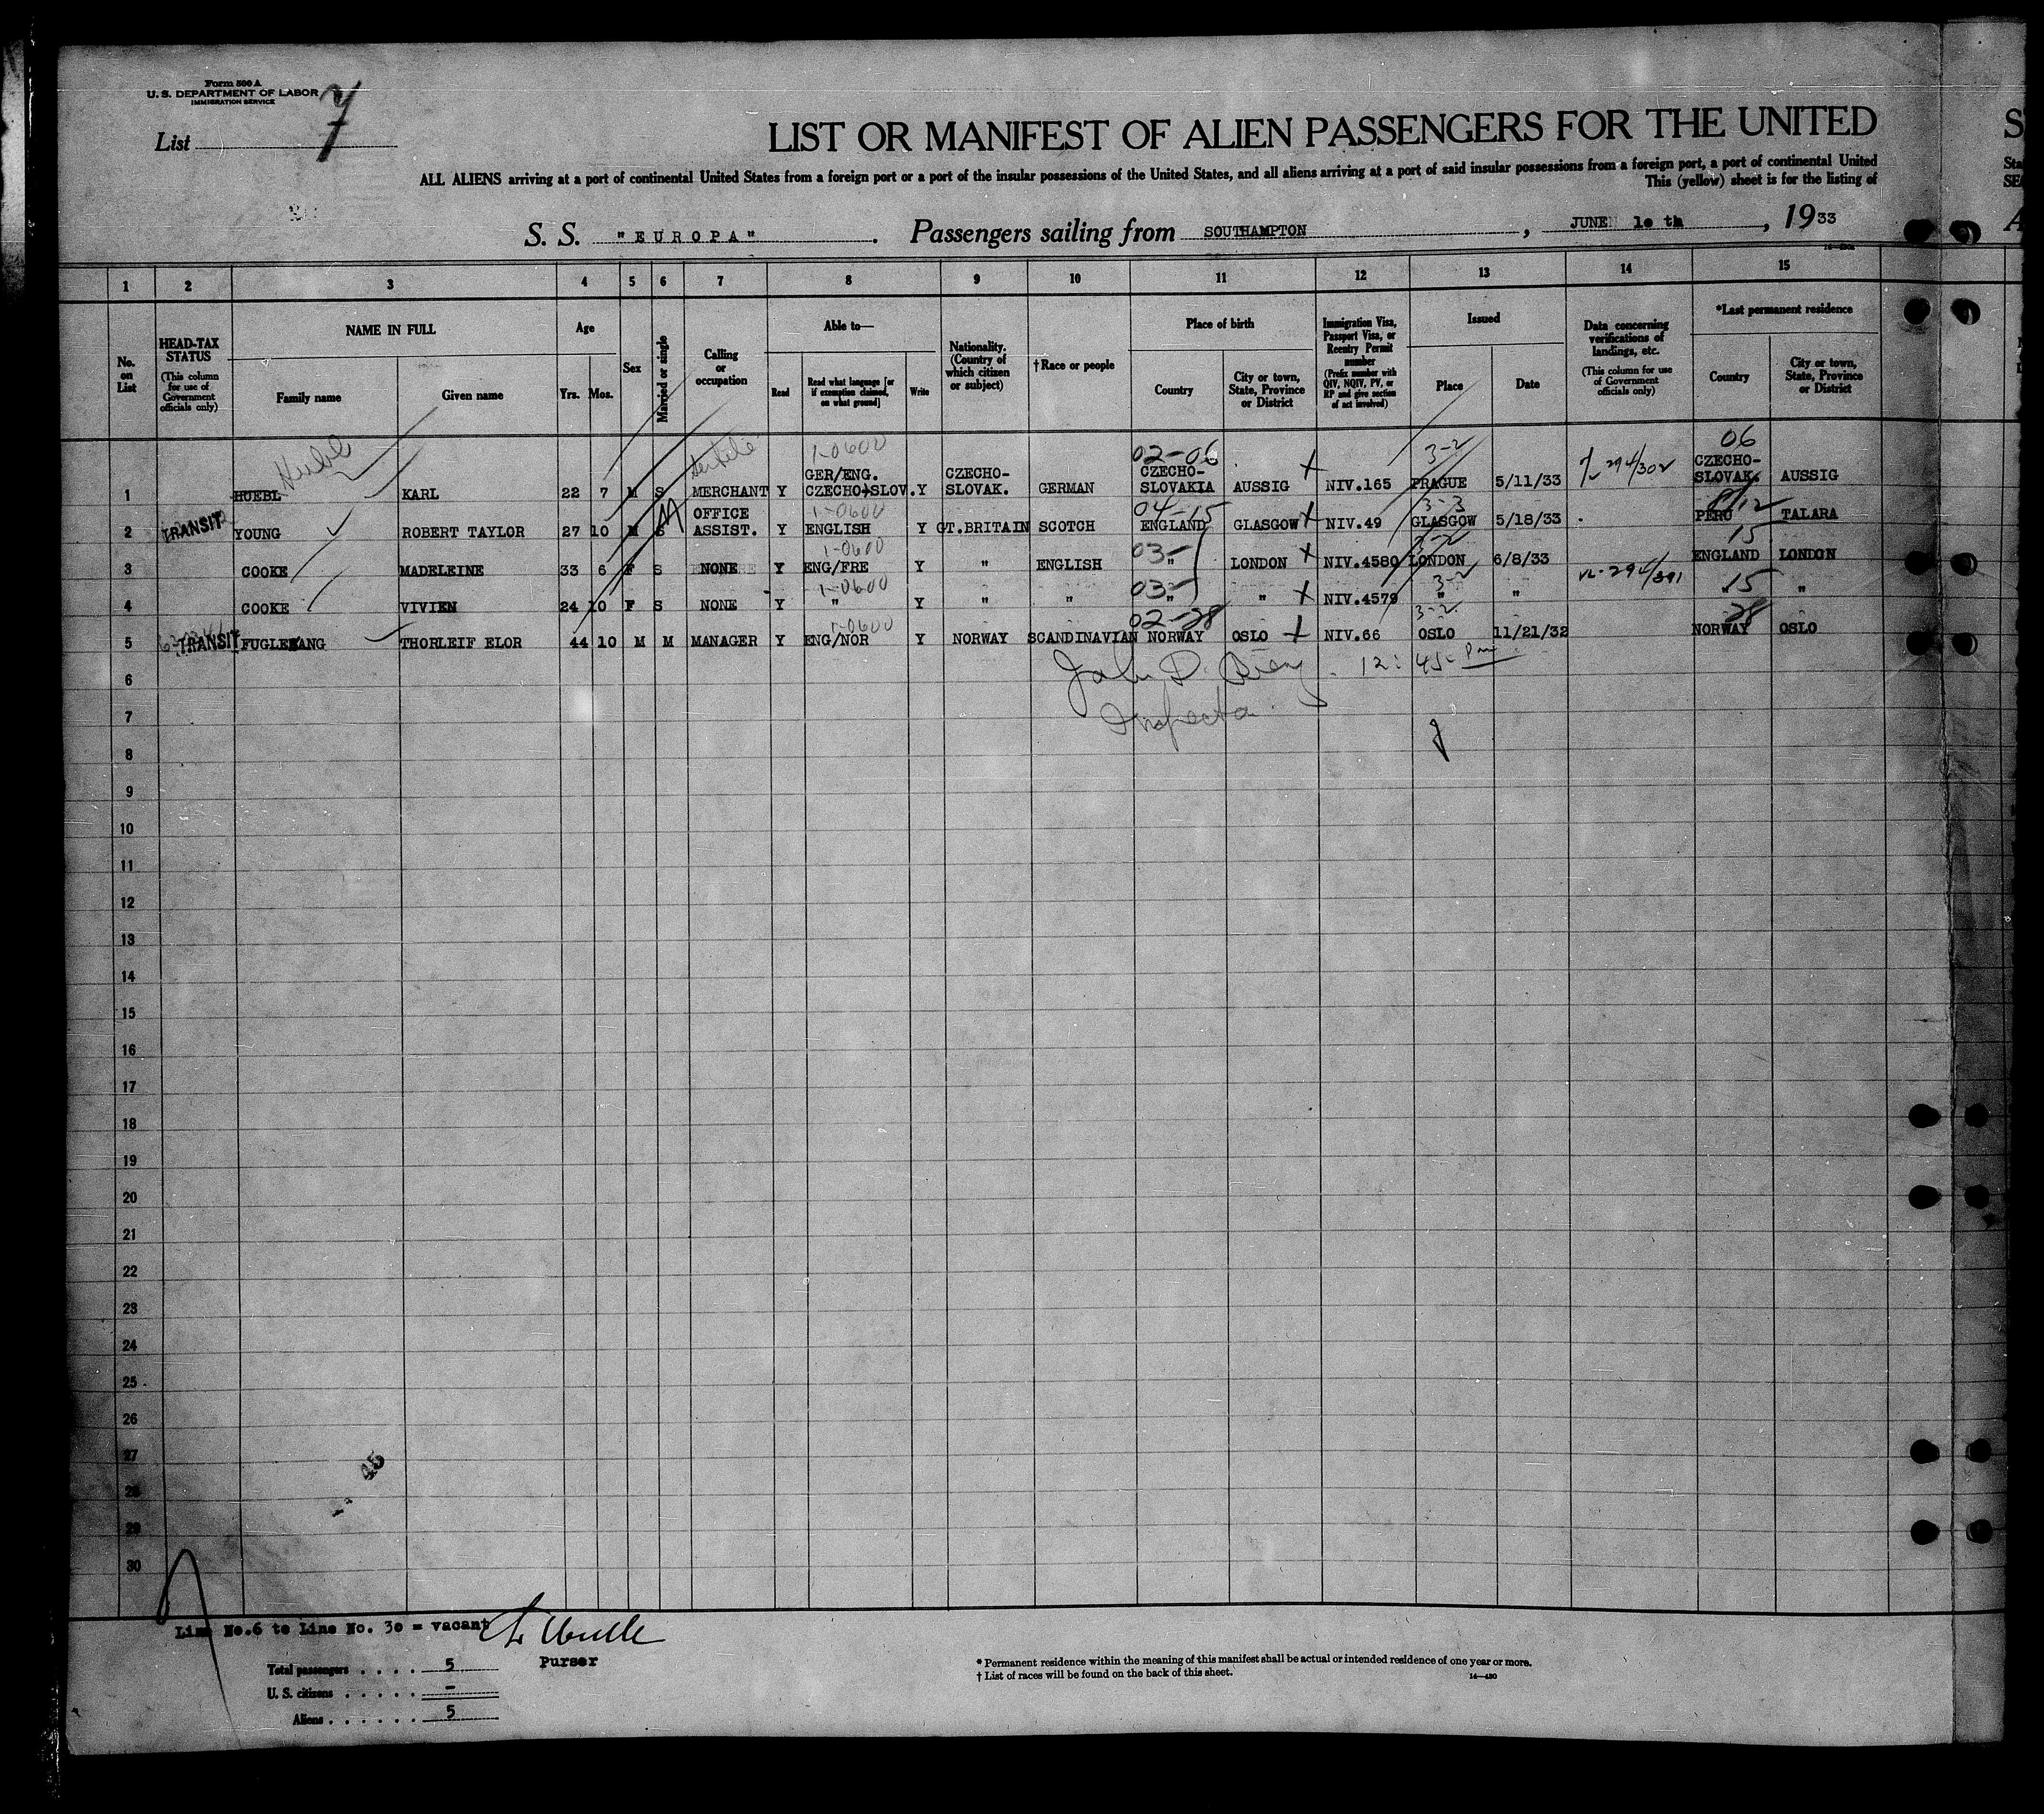 Form 500 A
U. S. DEPARTMENT OF LABOR
IMMIGRATION SERVICE
List 7
LIST OR MANIFEST OF ALIEN PASSENGERS FOR THE UNITED
ALL ALIENS arriving at a port of continental United States from a foreign port or a port of the insular possessions of the United States, and all aliens arriving at a port of said insular possessions from a foreign port, a port of continental United
This (yellow) sheet is for the listing of
S. S. "EUROPA" . Passengers sailing from SOUTHAMPTON , JUNE 10 th , 1933
1 2 3 4 5 6 7 8 9 10 11 12 13 14 15
No. on List
HEAD-TAX STATUS (This column for use of Government officials only)
NAME IN FULL Family name Given name
Age Yrs. Mos.
Sex
Married or single
Calling or occupation
Able to— Read Read what language [or if exemption claimed, on what ground] Write
Nationality. (Country of which citizen or subject)
†Race or people
Place of birth Country City or town, State, Province or District
Immigration Visa, Passport Visa, or Reentry Permit number (Prefix number with QIV, NQIV, PV, or RP and give section of act involved)
Issued Place Date
Data concerning verifications of landings, etc. (This column for use of Government officials only)
*Last permanent residence Country City or town, State, Province or District
Huebl 1-0600 02-06 3-2 06
1 HUEBL KARL 22 7 M S MERCHANT Y GER/ENG. CZECHO-SLOV. Y CZECHO-SLOVAK. GERMAN CZECHO-SLOVAKIA AUSSIG NIV.165 PRAGUE 5/11/33 294/302 CZECHO-SLOVAK. AUSSIG
1-0600 04-15 3-3 12
2 TRANSIT YOUNG ROBERT TAYLOR 27 10 M S M OFFICE ASSIST. Y ENGLISH Y GT.BRITAIN SCOTCH ENGLAND GLASGOW NIV.49 GLASGOW 5/18/33 PERU TALARA
1-0600 03- 3-2 15
3 COOKE MADELEINE 33 6 F S NONE Y ENG/FRE Y " ENGLISH " LONDON NIV.4580 LONDON 6/8/33 ENGLAND LONDON
1-0600 03- 3-2 15
4 COOKE VIVIEN 24 10 F S NONE Y " Y " " " " NIV.4579 " " 294/391 " "
1-0600 02-28 3-2 28
5 TRANSIT FUGLEXANG THORLEIF ELOR 44 10 M M MANAGER Y ENG/NOR Y NORWAY SCANDINAVIAN NORWAY OSLO NIV.66 OSLO 11/21/32 NORWAY OSLO
6 John D. 12:45 Pm
7 Inspector
8
9
10
11
12
13
14
15
16
17
18
19
20
21
22
23
24
25
26
27
28
29
30
45
Line No.6 to Line No. 30 = vacant
Purser
Total passengers . . . . 5
U. S. citizens . . . . . –
Aliens . . . . . . 5
* Permanent residence within the meaning of this manifest shall be actual or intended residence of one year or more.
† List of races will be found on the back of this sheet.
14—430